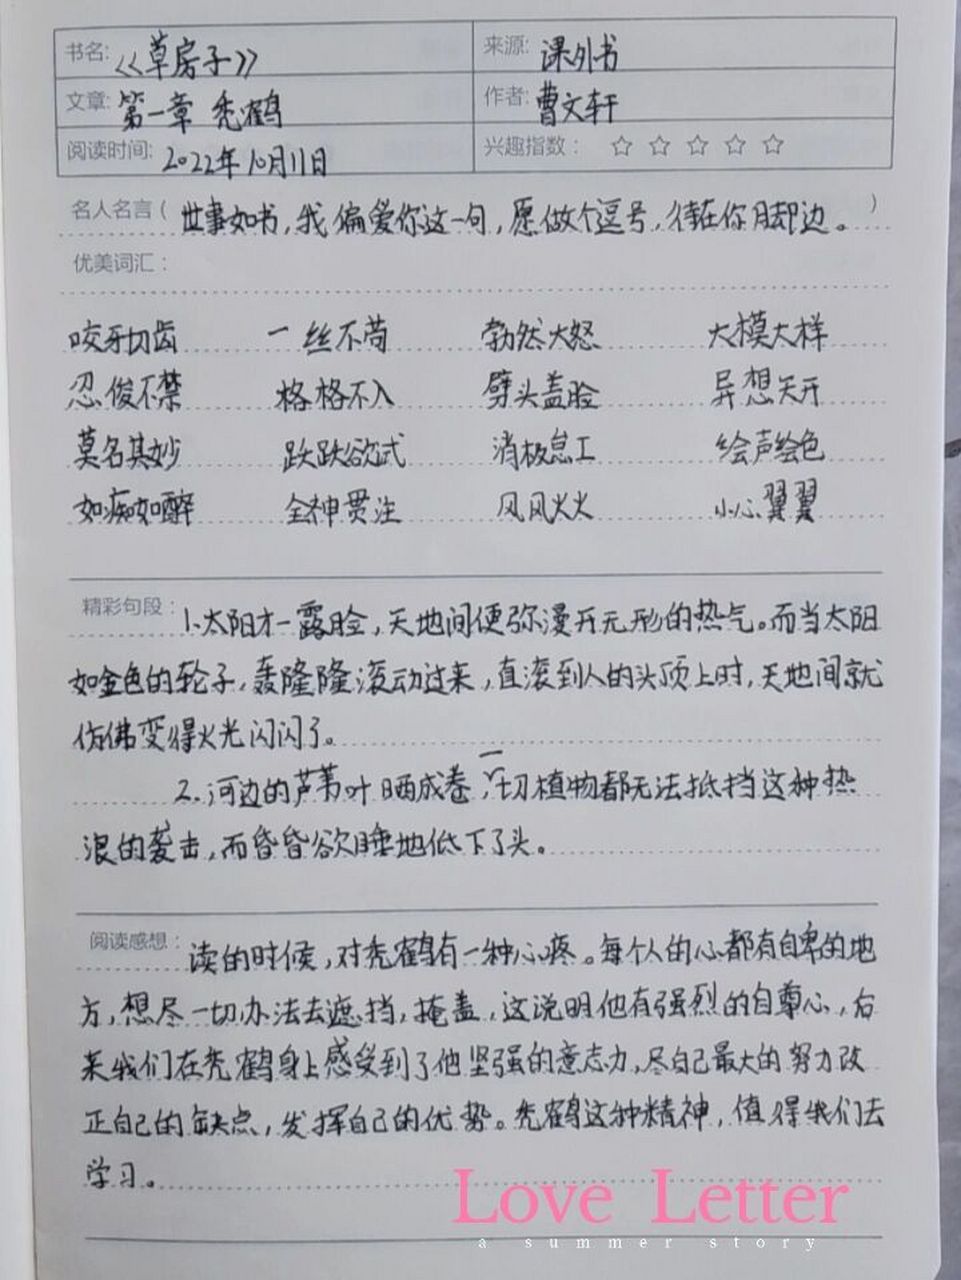 书名: 《草房子》 来源: 课外书
文章: 第一章 秃鹤 作者: 曹文轩
阅读时间: 2022年10月11日 兴趣指数: ☆ ☆ ☆ ☆ ☆
名人名言( 世事如书,我偏爱你这一句,愿做个逗号,待在你脚边。 )
优美词汇:
咬牙切齿 一丝不苟 勃然大怒 大模大样
忍俊不禁 格格不入 劈头盖脸 异想天开
莫名其妙 跃跃欲试 消极怠工 绘声绘色
如痴如醉 全神贯注 风风火火 小心翼翼
精彩句段: 1.太阳才一露脸,天地间便弥漫开无形的热气。而当太阳
如金色的轮子,轰隆隆滚动过来,直滚到人的头顶上时,天地间就
仿佛变得火光闪闪了。
2.河边的芦苇叶晒成卷,一切植物都无法抵挡这种热
浪的袭击,而昏昏欲睡地低下了头。
阅读感想: 读的时候,对秃鹤有一种心疼。每个人的心都有自卑的地
方,想尽一切办法去遮挡,掩盖,这说明他有强烈的自尊心,后
来我们在秃鹤身上感受到了他坚强的意志力,尽自己最大的努力改
正自己的缺点,发挥自己的优势。秃鹤这种精神,值得我们去
学习。
Love Letter
a summer story